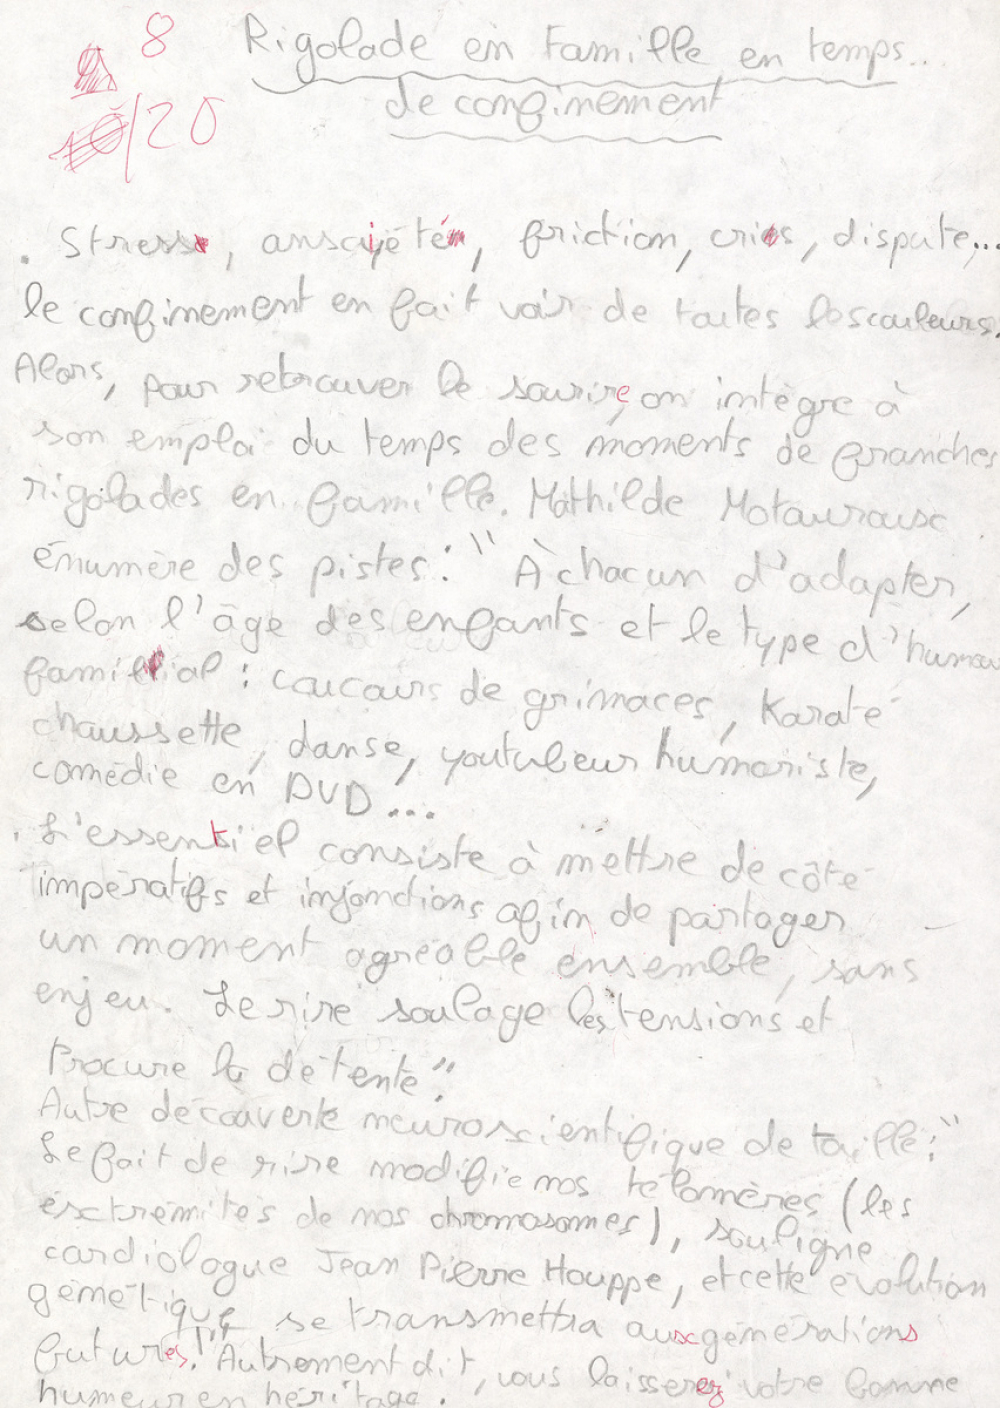 8
/20
Rigolade en Famille en temps..
de confinement
. Stress, ansciété, friction, cris, dispute,...
le confinement en fait voir de toutes les couleurs.
Alors, pour retrouver le sourire, on intègre à
son emploi du temps des moments de franches
rigolades en famille. Mathilde Motauroux
énumère des pistes : "À chacun d'adapter,
selon l'âge des enfants et le type d'humour
familial : concours de grimaces, Karaté
chaussette, danse, youtubeur humoriste,
comédie en DVD...
. L'essentiel consiste à mettre de côté
impératifs et injonctions afin de partager
un moment agréable ensemble, sans
enjeu. Le rire soulage les tensions et
Procure la détente".
Autre découverte neuroscientifique de taille : "
Le fait de rire modifie nos télomères (les
éxtrémités de nos chromosomes), souligne
cardiologue Jean Pierre Houppe, et cette évolution
génétique se transmettra aux générations
futures." Autrement dit, vous laisserez votre bonne
humeur en héritage.